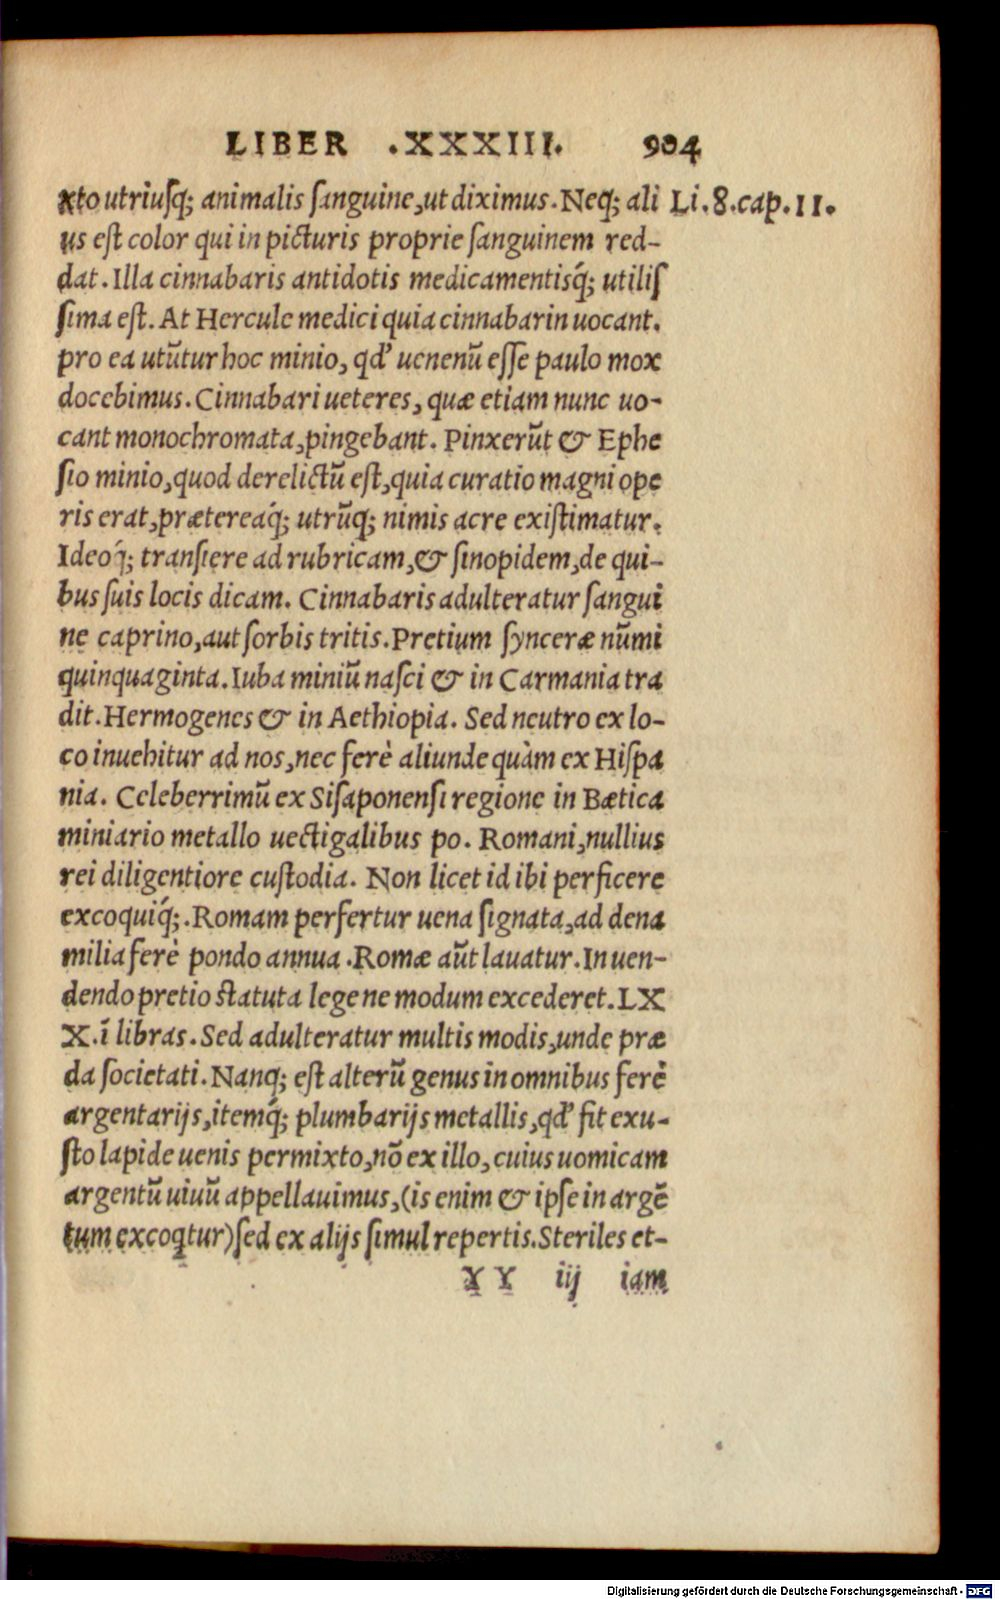 LIBER .XXXIII. 904
xto utriusq; animalis ſanguine, ut diximus. Neq; ali Li.8.cap.11.
us eſt color qui in picturis proprie ſanguinem red-
dat. Illa cinnabaris antidotis medicamentisq́; utiliſ
ſima eſt. At Hercule medici quia cinnabarin uocant.
pro ea utūtur hoc minio, qd' uenenū eſſe paulo mox
docebimus. Cinnabari ueteres, quæ etiam nunc uo-
cant monochromata, pingebant. Pinxerūt & Ephe
ſio minio, quod derelictū eſt, quia curatio magni ope
ris erat, prætereaq́; utrūq; nimis acre exiſtimatur.
Ideoq́; tranſiere ad rubricam, & ſinopidem, de qui-
bus ſuis locis dicam. Cinnabaris adulteratur ſangui
ne caprino, aut ſorbis tritis. Pretium ſynceræ nūmi
quinquaginta. Iuba miniū naſci & in Carmania tra
dit. Hermogenes & in Aethiopia. Sed neutro ex lo-
co inuehitur ad nos, nec ferè aliunde quàm ex Hiſpa
nia. Celeberrimū ex Siſaponenſi regione in Bætica
miniario metallo uectigalibus po. Romani, nullius
rei diligentiore cuſtodia. Non licet id ibi perficere
excoquiq́;. Romam perfertur uena ſignata, ad dena
milia ferè pondo annua. Romæ aūt lauatur. In uen-
dendo pretio ſtatuta lege ne modum excederet. LX
X. ī libras. Sed adulteratur multis modis, unde præ
da ſocietati. Nanq; eſt alterū genus in omnibus ferè
argentarijs, itemq́; plumbarijs metallis, qd' fit exu-
ſto lapide uenis permixto, nō ex illo, cuius uomicam
argentū uiuū appellauimus, (is enim & ipſe in argē
tum excoqtur) ſed ex alijs ſimul repertis. Steriles et-
YY iij iam
Digitalisierung gefördert durch die Deutsche Forschungsgemeinschaft - DFG